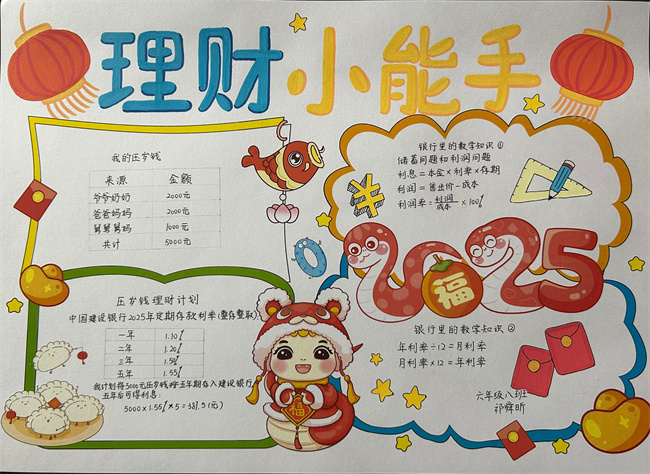 理财小能手
我的压岁钱
来源 金额
爷爷奶奶 2000元
爸爸妈妈 2000元
舅舅舅妈 1000元
共计 5000元
银行里的数学知识①
储蓄问题和利润问题
利息=本金×利率×存期
利润=售出价-成本
利润率=利润/成本×100%
2025
福
压岁钱理财计划
中国建设银行2025年定期存款利率(整存整取)
一年 1.10%
二年 1.20%
三年 1.50%
五年 1.55%
我计划将5000元压岁钱按五年期存入建设银行
五年后可得利息:
5000×1.55%×5=387.5(元)
福
银行里的数学知识②
年利率÷12=月利率
月利率×12=年利率
六年级八班
祁舜昕